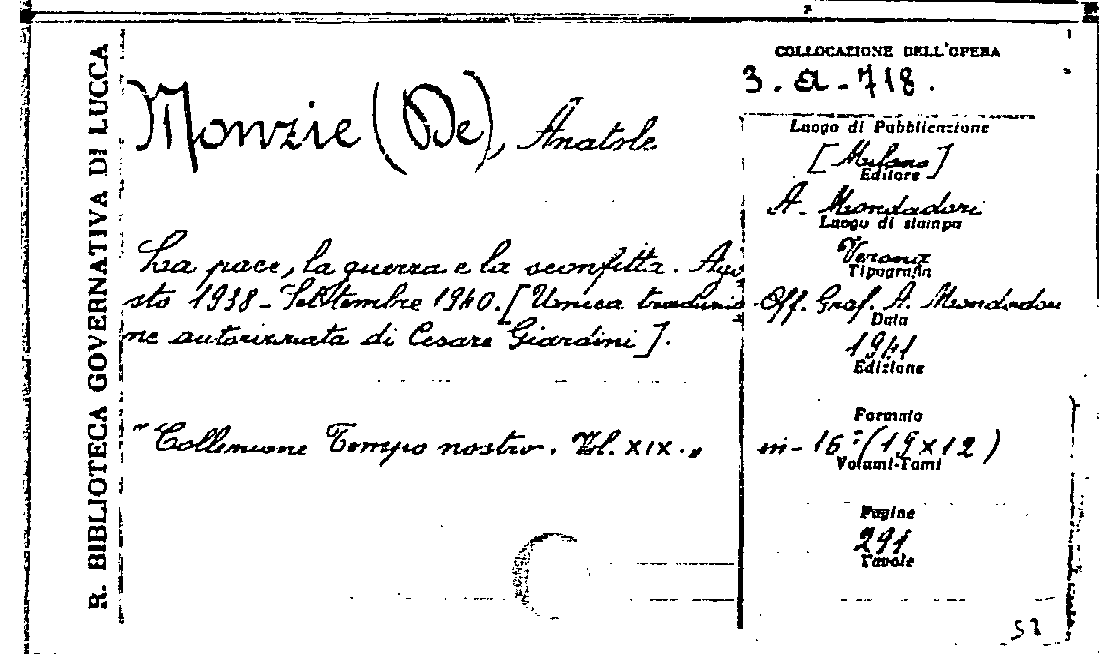 R. BIBLIOTECA GOVERNATIVA DI LUCCA
Monzie (De), Anatole
La pace, la guerra e la sconfitta. Ago
sto 1938 - Settembre 1940. [Unica traduzio
ne autorizzata di Cesare Giardini].
"Collezione Tempo nostro. Vol. XIX."
COLLOCAZIONE DELL'OPERA
3. a - 718.
Luogo di Pubblicazione
[Milano]
Editore
A. Mondadori
Luogo di stampa
Verona
Tipografia
Off. Graf. A. Mondadori
Data
1941
Edizione
Formato
in-16° (19 x 12)
Volumi-Tomi
Pagine
291
Tavole